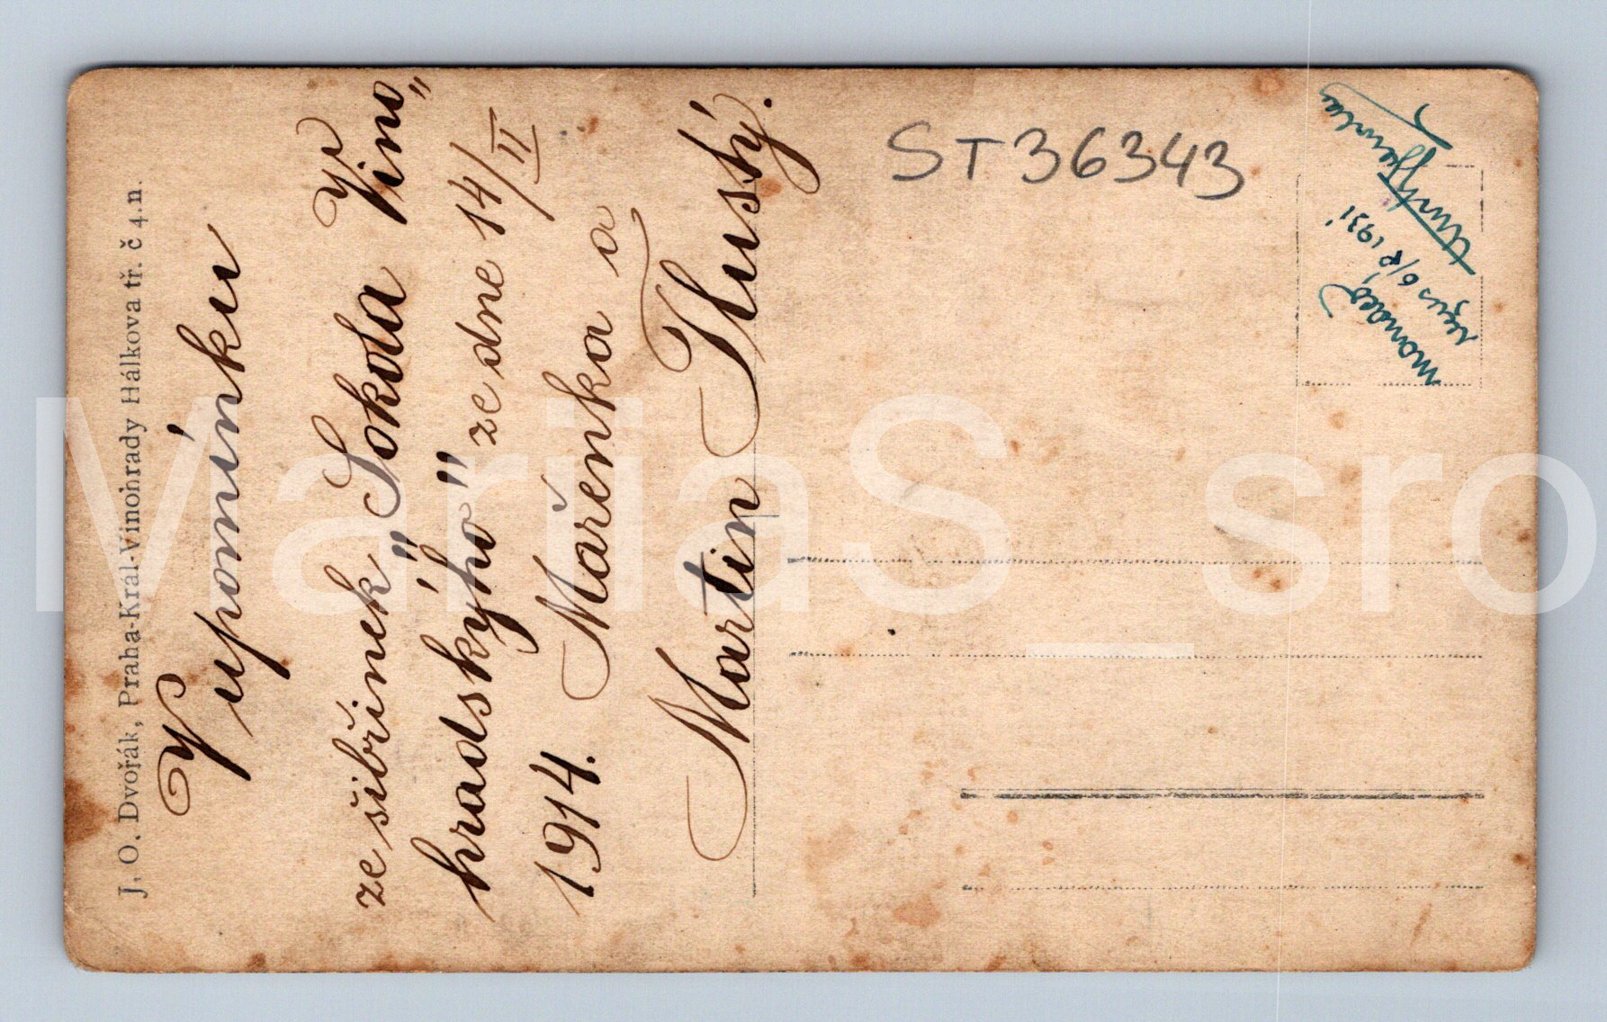 J. O. Dvořák, Praha-Král-Vinohrady Hálkova tř. č 4. n.
Vupomínku
ze šibřinek „Sokola Vino„
hradskýho" ze dne 14/II
1914. Mařenka a
Martin Hluský.
ST36343
1931
MariiaS_sro